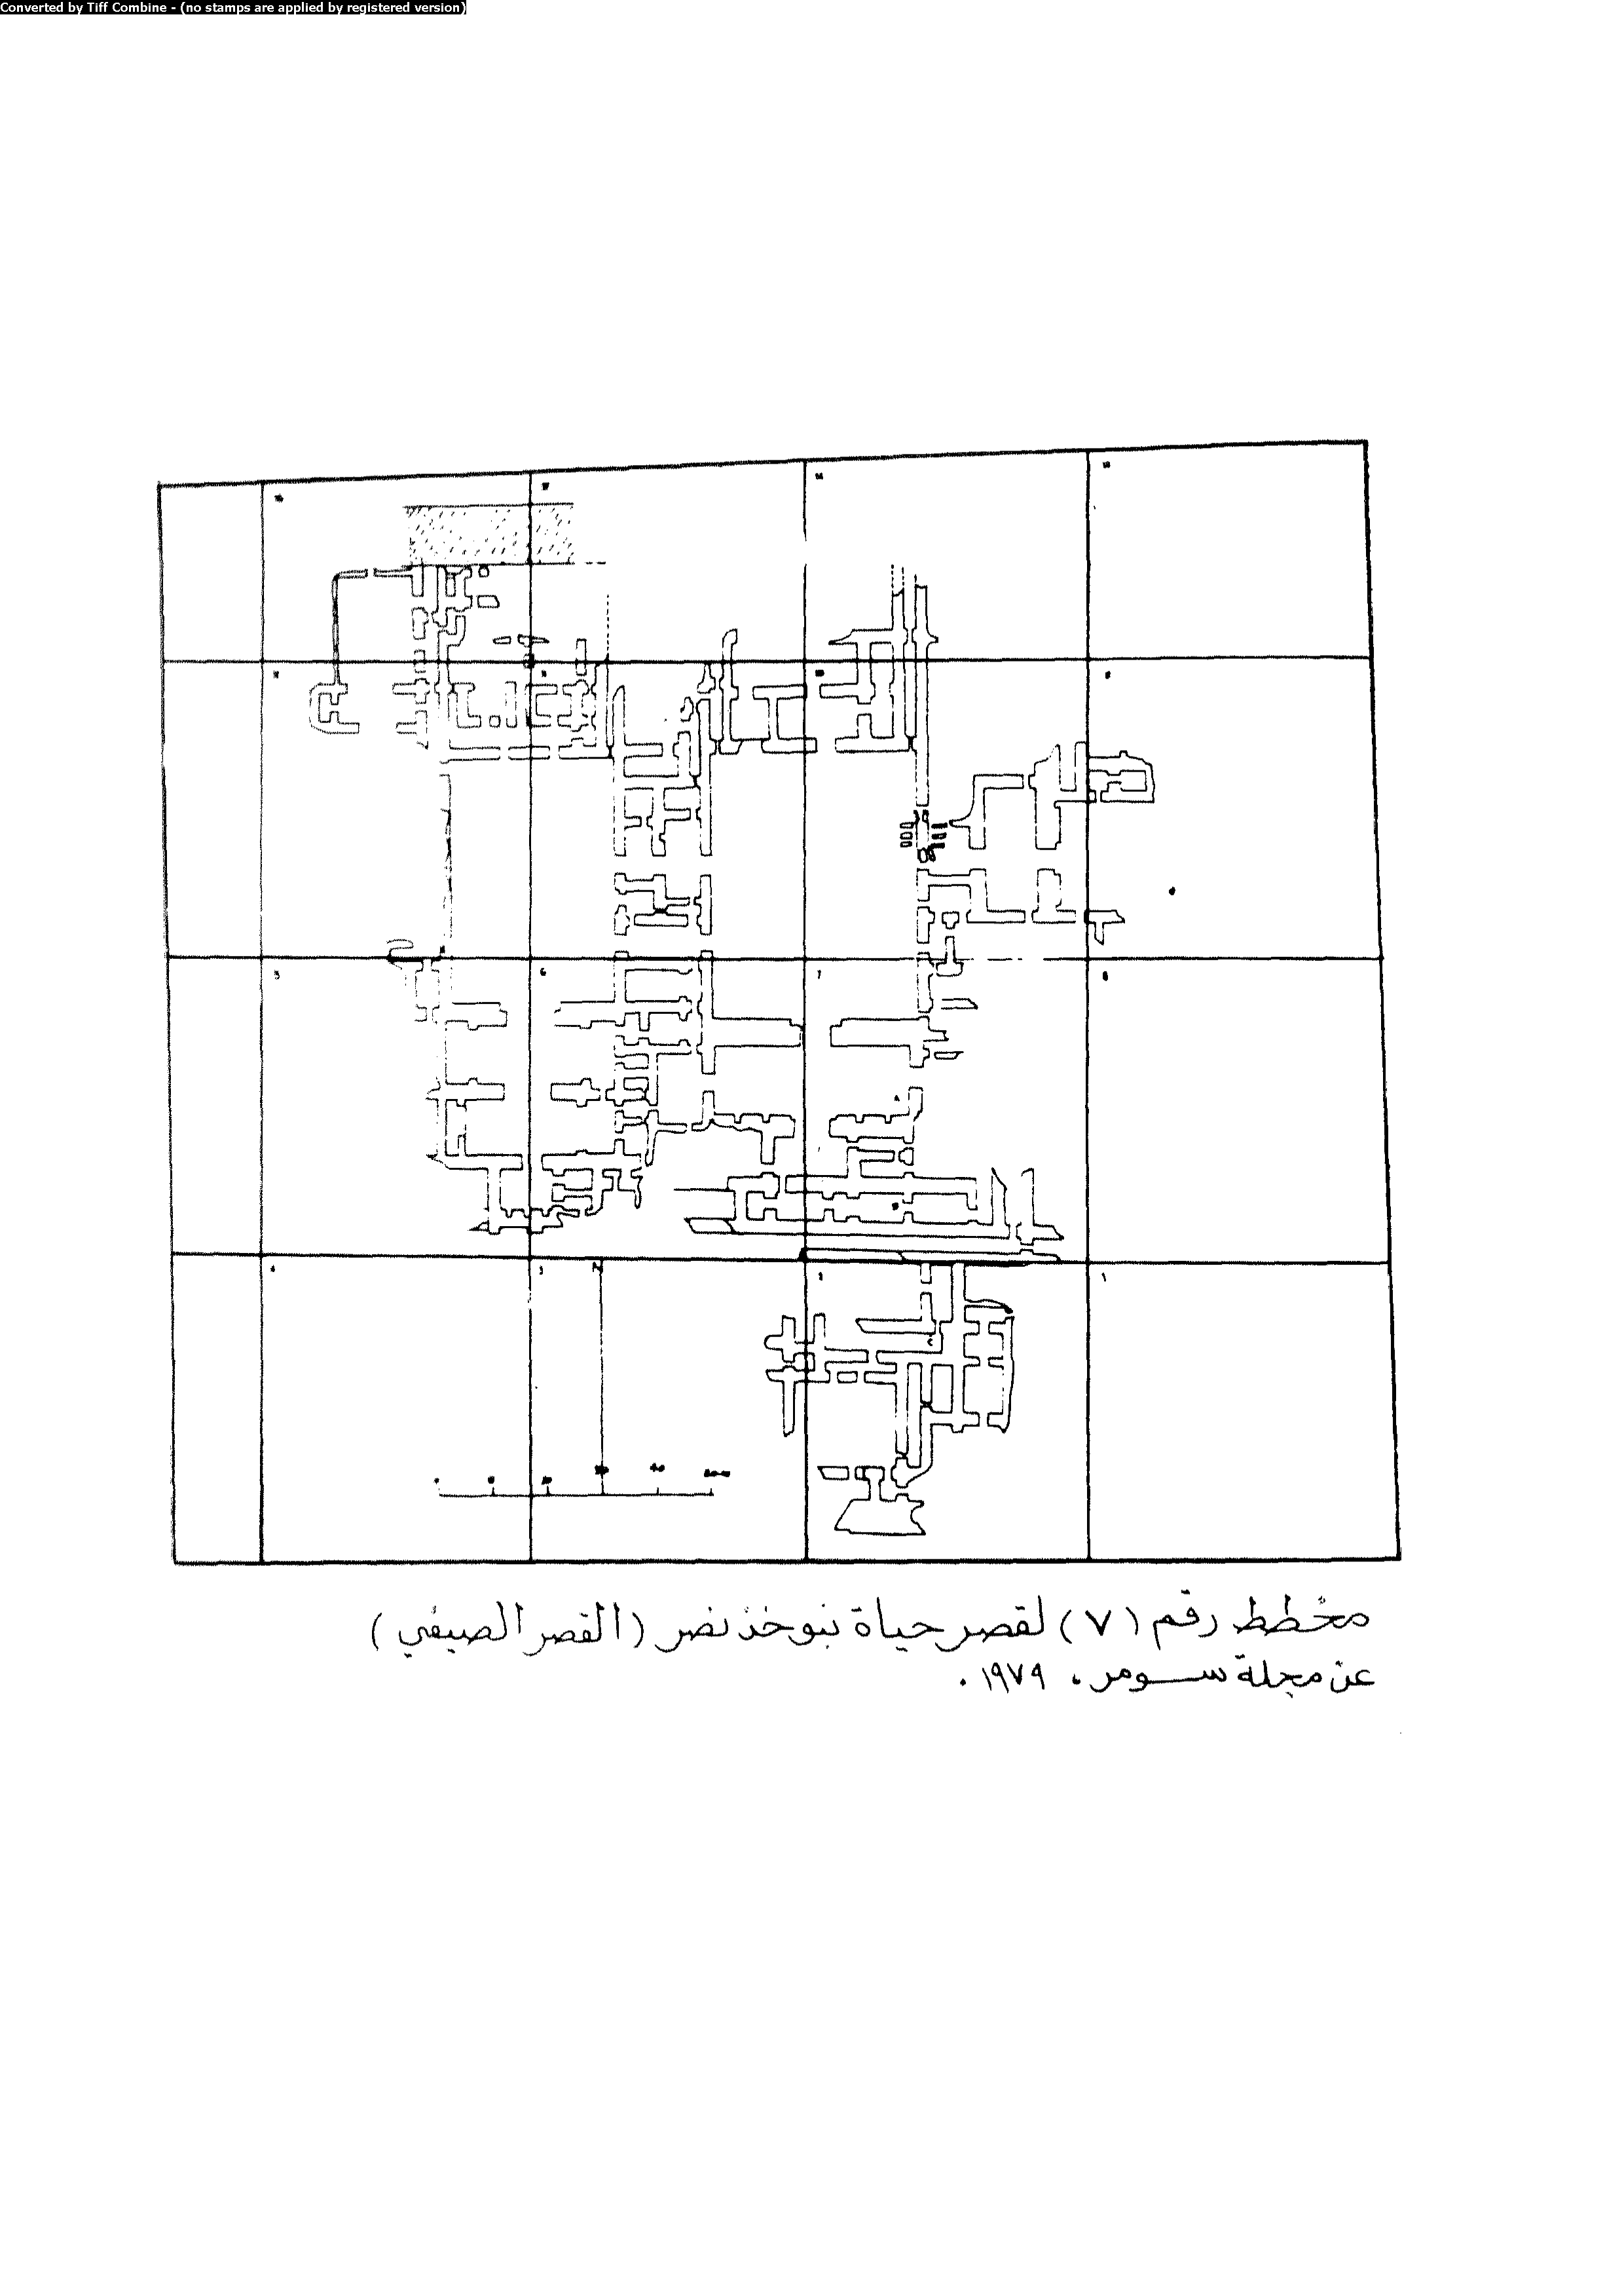 Converted by Tiff Combine - (no stamps are applied by registered version)
5
6
7
8
4
3
2
1
مخطط رقم (٧) لقصر حياة نبوخذ نصر (القصر الصيفي)
عن مجلة سومر، ١٩٧٩.